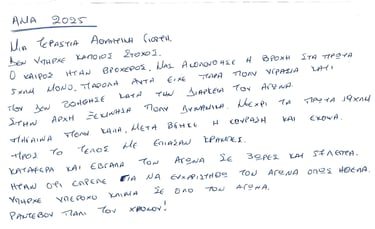 ΑΝΑ 2025
ΜΙΑ ΤΕΡΑΣΤΙΑ ΑΘΛΗΤΙΚΗ ΓΙΟΡΤΗ.
ΔΕΝ ΥΠΗΡΧΕ ΚΑΠΟΙΟΣ ΣΤΟΧΟΣ.
Ο ΚΑΙΡΟΣ ΗΤΑΝ ΒΡΟΧΕΡΟΣ. ΜΑΣ ΑΚΟΛΟΥΘΗΣΕ Η ΒΡΟΧΗ ΣΤΑ ΠΡΩΤΑ
5ΧΛΜ ΜΟΝΟ. ΠΑΡΟΛΑ ΑΥΤΑ ΕΙΧΕ ΠΑΡΑ ΠΟΛΥ ΥΓΡΑΣΙΑ ΚΑΤΙ
ΠΟΥ ΔΕΝ ΒΟΗΘΗΣΕ ΚΑΤΑ ΤΗΝ ΔΙΑΡΚΕΙΑ ΤΟΥ ΑΓΩΝΑ.
ΣΤΗΝ ΑΡΧΗ ΞΕΚΙΝΗΣΑ ΠΟΛΥ ΔΥΝΑΜΙΚΑ. ΜΕΧΡΙ ΤΑ ΠΡΩΤΑ 19ΧΛΜ
ΠΗΓΑΙΝΑ ΠΟΛΥ ΚΑΛΑ, ΜΕΤΑ ΒΓΗΚΕ Η ΚΟΥΡΑΣΗ ΚΑΙ ΕΚΟΨΑ.
ΠΡΟΣ ΤΟ ΤΕΛΟΣ ΜΕ ΕΠΙΑΣΑΝ ΚΡΑΜΠΕΣ.
ΚΑΤΑΦΕΡΑ ΚΑΙ ΕΒΓΑΛΑ ΤΟΝ ΑΓΩΝΑ ΣΕ 3ΩΡΕΣ ΚΑΙ 57ΛΕΠΤΑ.
ΗΤΑΝ ΟΤΙ ΕΠΡΕΠΕ ΓΙΑ ΝΑ ΕΥΧΑΡΙΣΤΗΘΩ ΤΟΝ ΑΓΩΝΑ ΟΠΩΣ ΗΘΕΛΑ.
ΥΠΗΡΧΕ ΥΠΕΡΟΧΟ ΚΛΙΜΑ ΣΕ ΟΛΟ ΤΟΝ ΑΓΩΝΑ.
ΡΑΝΤΕΒΟΥ ΠΑΛΙ ΤΟΥ ΧΡΟΝΟΥ!